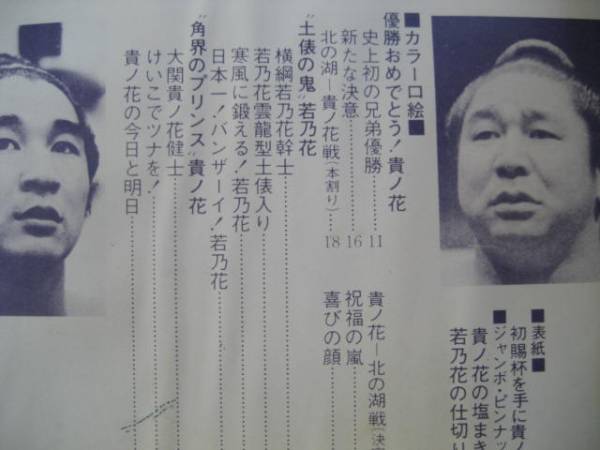 ■カラー口絵■
優勝おめでとう！貴ノ花
史上初の兄弟優勝……11
新たな決意……16
北の湖―貴ノ花戦（本割り）……18
貴ノ花―北の湖戦（決
祝福の嵐
喜びの顔
“土俵の鬼”若乃花
横綱若乃花幹士
若乃花雲龍型土俵入り
寒風に鍛える！若乃花
日本一！バンザーイ！若乃花
“角界のプリンス”貴ノ花
大関貴ノ花健士
けいこでツナを！
貴ノ花の今日と明日
■表紙■
初賜杯を手に貴ノ
■ジャンボ・ピンナッ
貴ノ花の塩まき
若乃花の仕切り